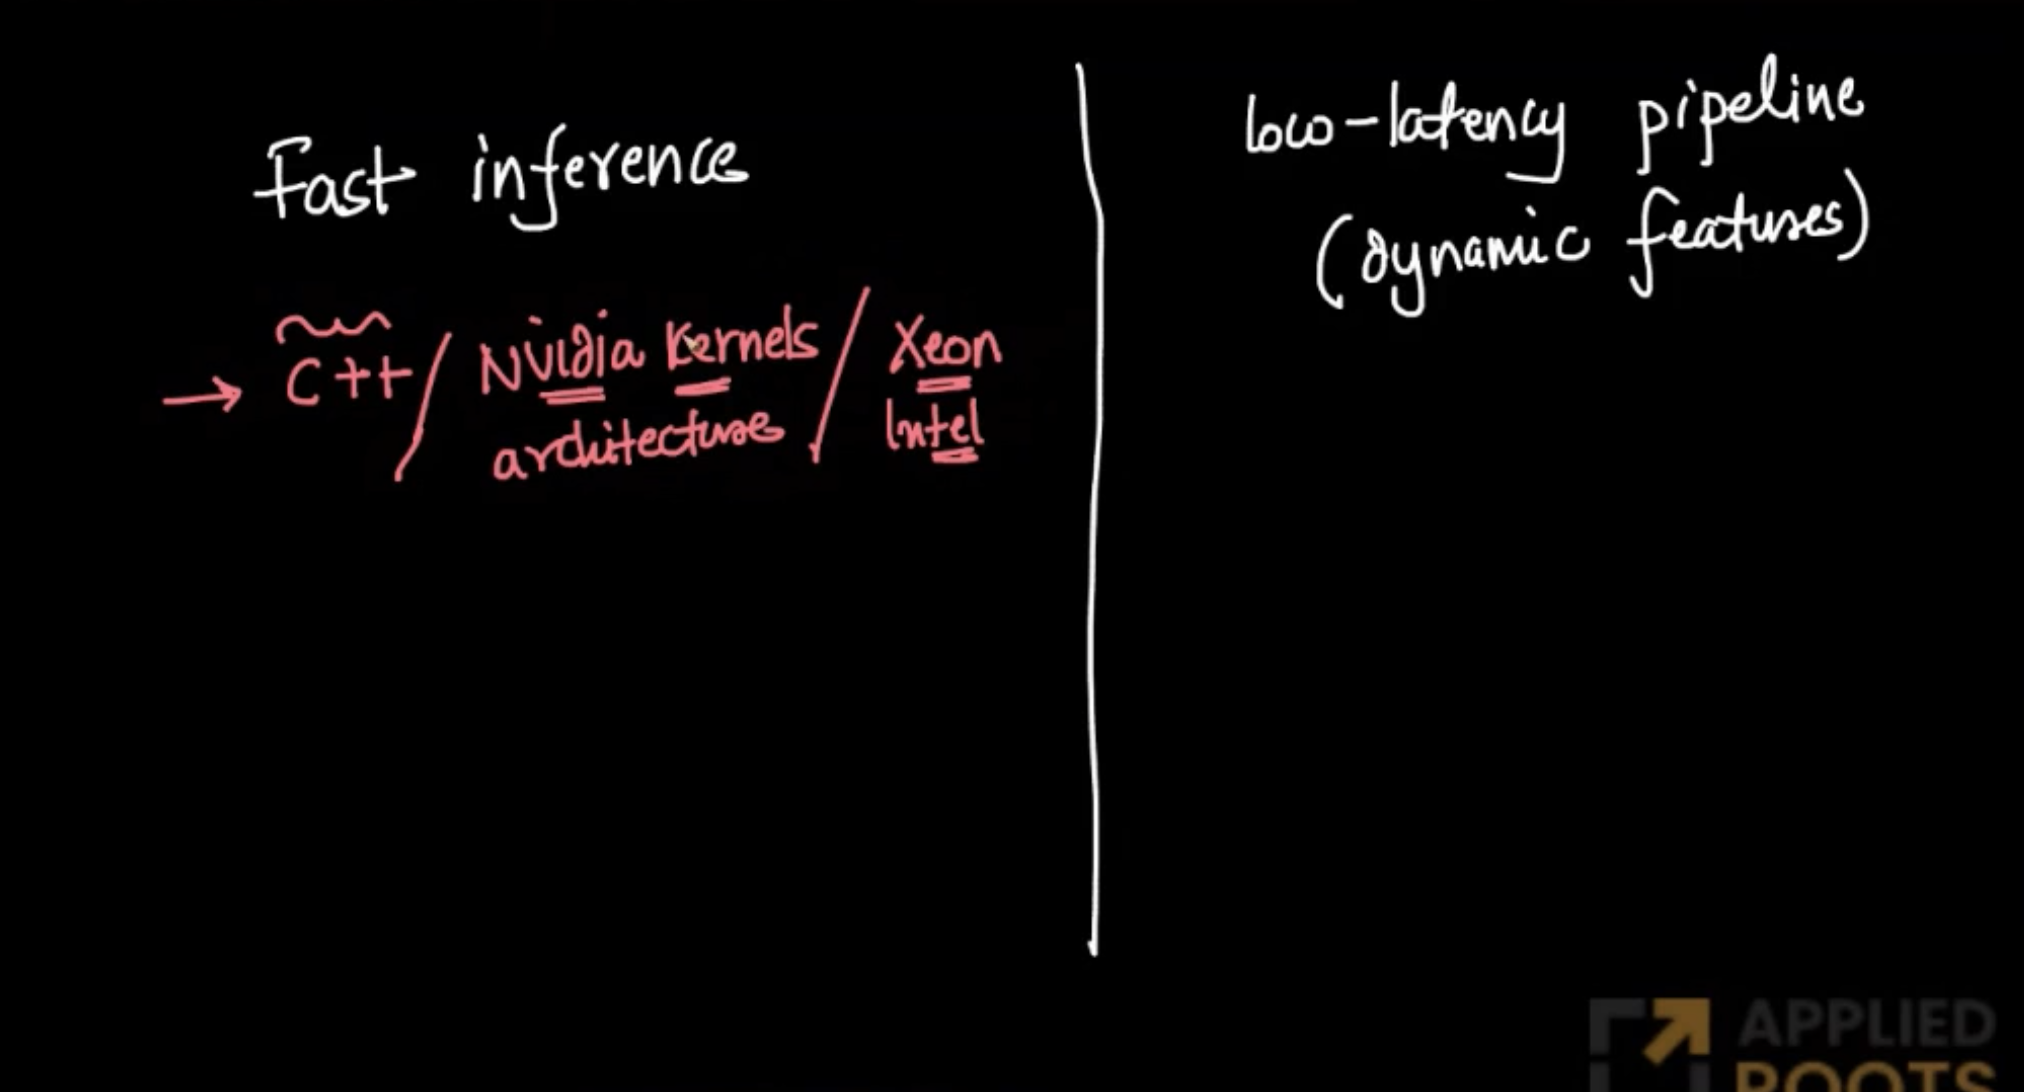 Fast inference
→ C++ / Nvidia Kernels / Xeon
architecture Intel
low-latency pipeline
(dynamic features)
APPLIED
ROOTS